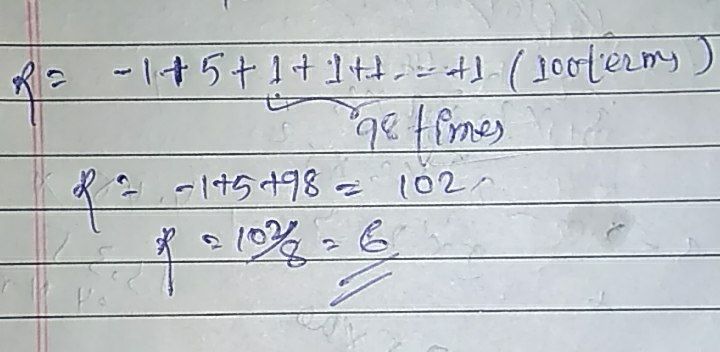 R = -1+5+1+1+1--=+1 (100terms)
98 times
R = -1+5+98 = 102
R = 102/8 = 6